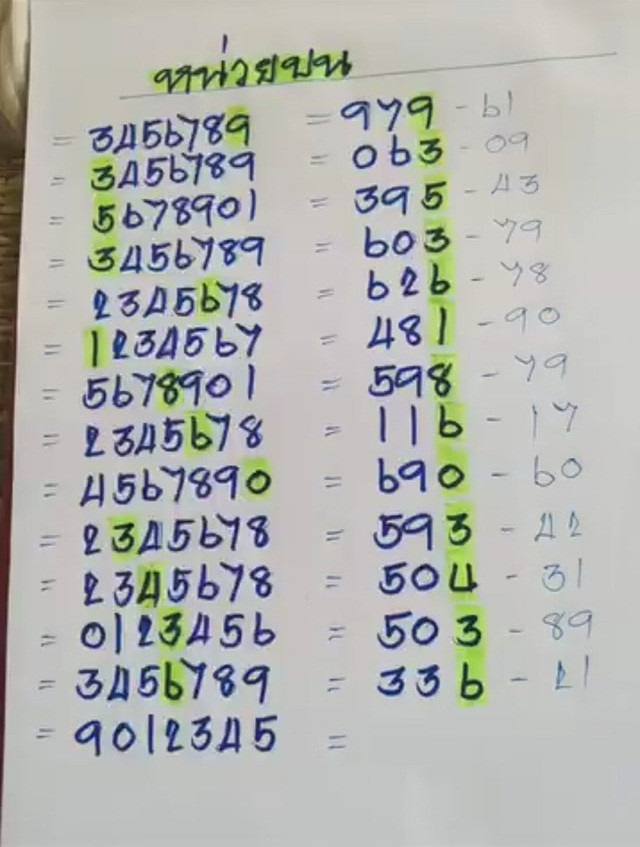 หน่วยบน
= 3456789 = 979 - 61
= 3456789 = 063 - 09
= 5678901 = 395 - 43
= 3456789 = 603 - 79
= 2345678 = 626 - 78
= 1234567 = 481 - 90
= 5678901 = 598 - 79
= 2345678 = 116 - 17
= 4567890 = 690 - 60
= 2345678 = 593 - 42
= 2345678 = 504 - 31
= 0123456 = 503 - 89
= 3456789 = 336 - 21
= 9012345 =